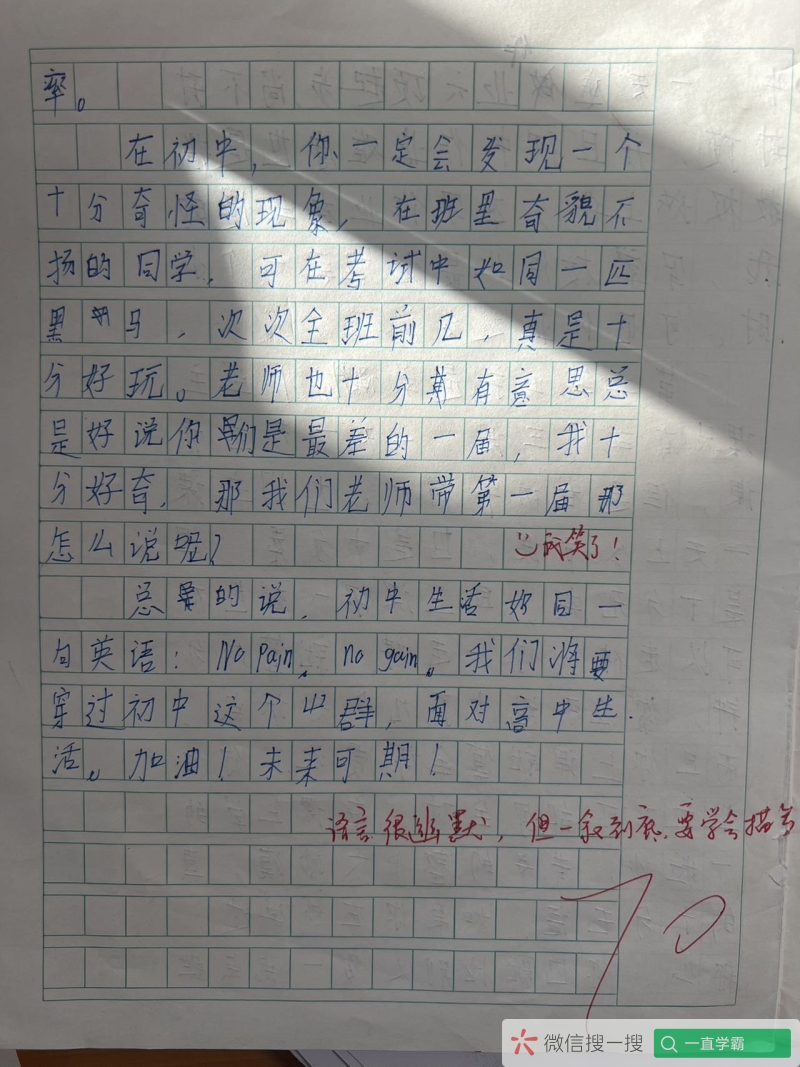 率。
在初中，你一定会发现一个
十分奇怪的现象，在班里奇貌不
扬的同学，可在考试中如同一匹
黑马，次次全班前几，真是十
分好玩。老师也十分有意思总
是好说你们是最差的一届，我十
分好奇，那我们老师带第一届那
怎么说呢？
我笑了！
总的说，初中生活如同一
句英语：No pain, no gain。我们将要
穿过初中这个山群，面对高中生
活。加油！未来可期！
语言很幽默，但一叙到底，要学会描写
70
微信搜一搜
一直学霸